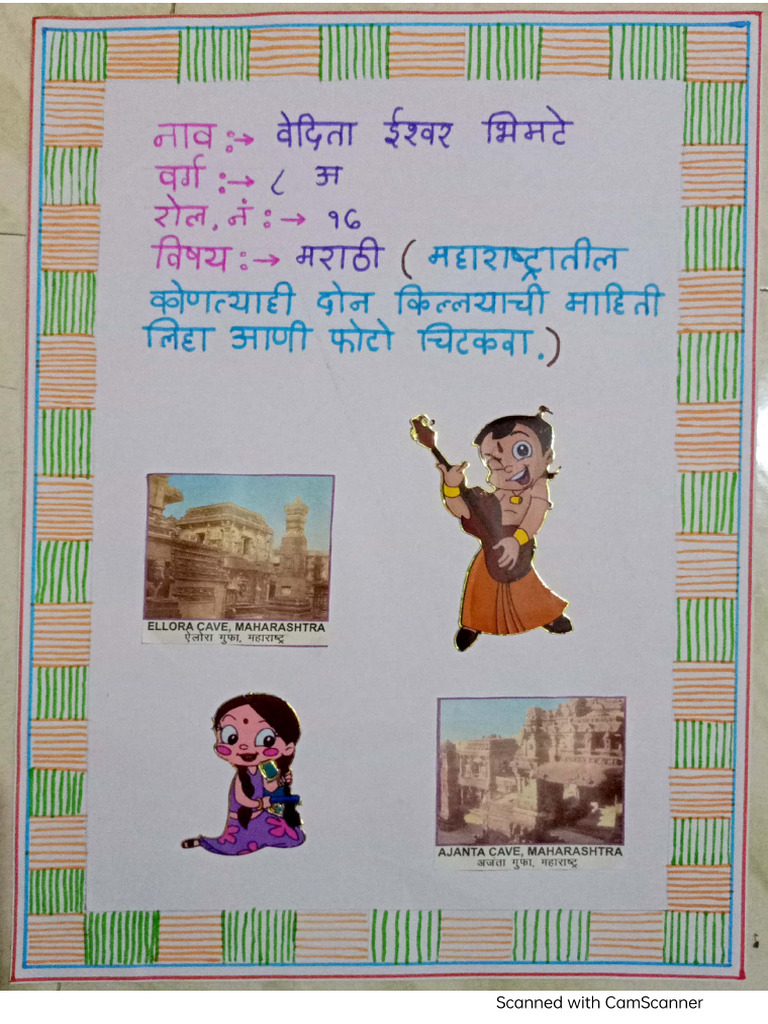 नाव :→ वेदिता ईश्वर भिमटे
वर्ग :→ ८ अ
रोल. नं :→ १६
विषय :→ मराठी ( महाराष्ट्रातील
कोणत्याही दोन किल्लयाची माहिती
लिहा आणी फोटो चिटकवा.)
ELLORA CAVE, MAHARASHTRA
ऐलोरा गुफा, महाराष्ट्र
AJANTA CAVE, MAHARASHTRA
अजंता गुफा, महाराष्ट्र
Scanned with CamScanner